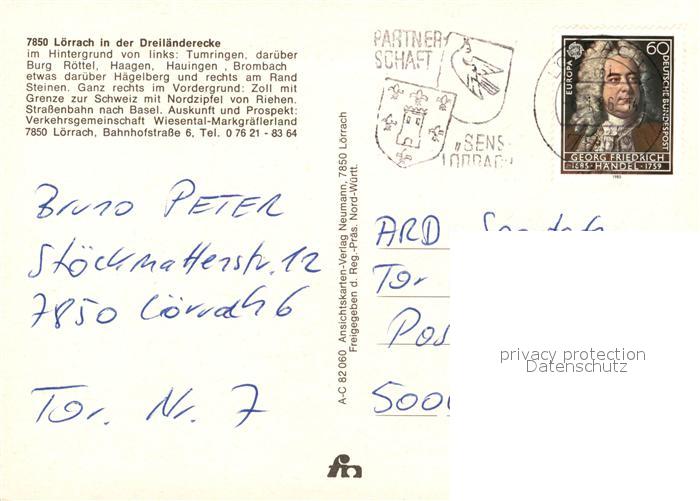 7850 Lörrach in der Dreiländerecke
im Hintergrund von links: Tumringen, darüber
Burg Röttel, Haagen, Hauingen , Brombach
etwas darüber Hägelberg und rechts am Rand
Steinen. Ganz rechts im Vordergrund: Zoll mit
Grenze zur Schweiz mit Nordzipfel von Riehen.
Straßenbahn nach Basel. Auskunft und Prospekt:
Verkehrsgemeinschaft Wiesental-Markgräflerland
7850 Lörrach, Bahnhofstraße 6, Tel. 0 76 21 - 83 64
Bruno PETER
Stöckmattenstr. 12
7850 Lörrach 6
Tor. Nr. 7
A-C 82 060 Ansichtskarten-Verlag Neumann, 7850 Lörrach
Freigegeben d. Reg.-Präs. Nord-Württ.
PARTNER
SCHAFT
„SENS
LÖRRACH
EUROPA
60
DEUTSCHE BUNDESPOST
GEORG FRIEDRICH
1685 · HÄNDEL · 1759
1985
ARD
Tor
Pos
5000
privacy protection
Datenschutz
fn